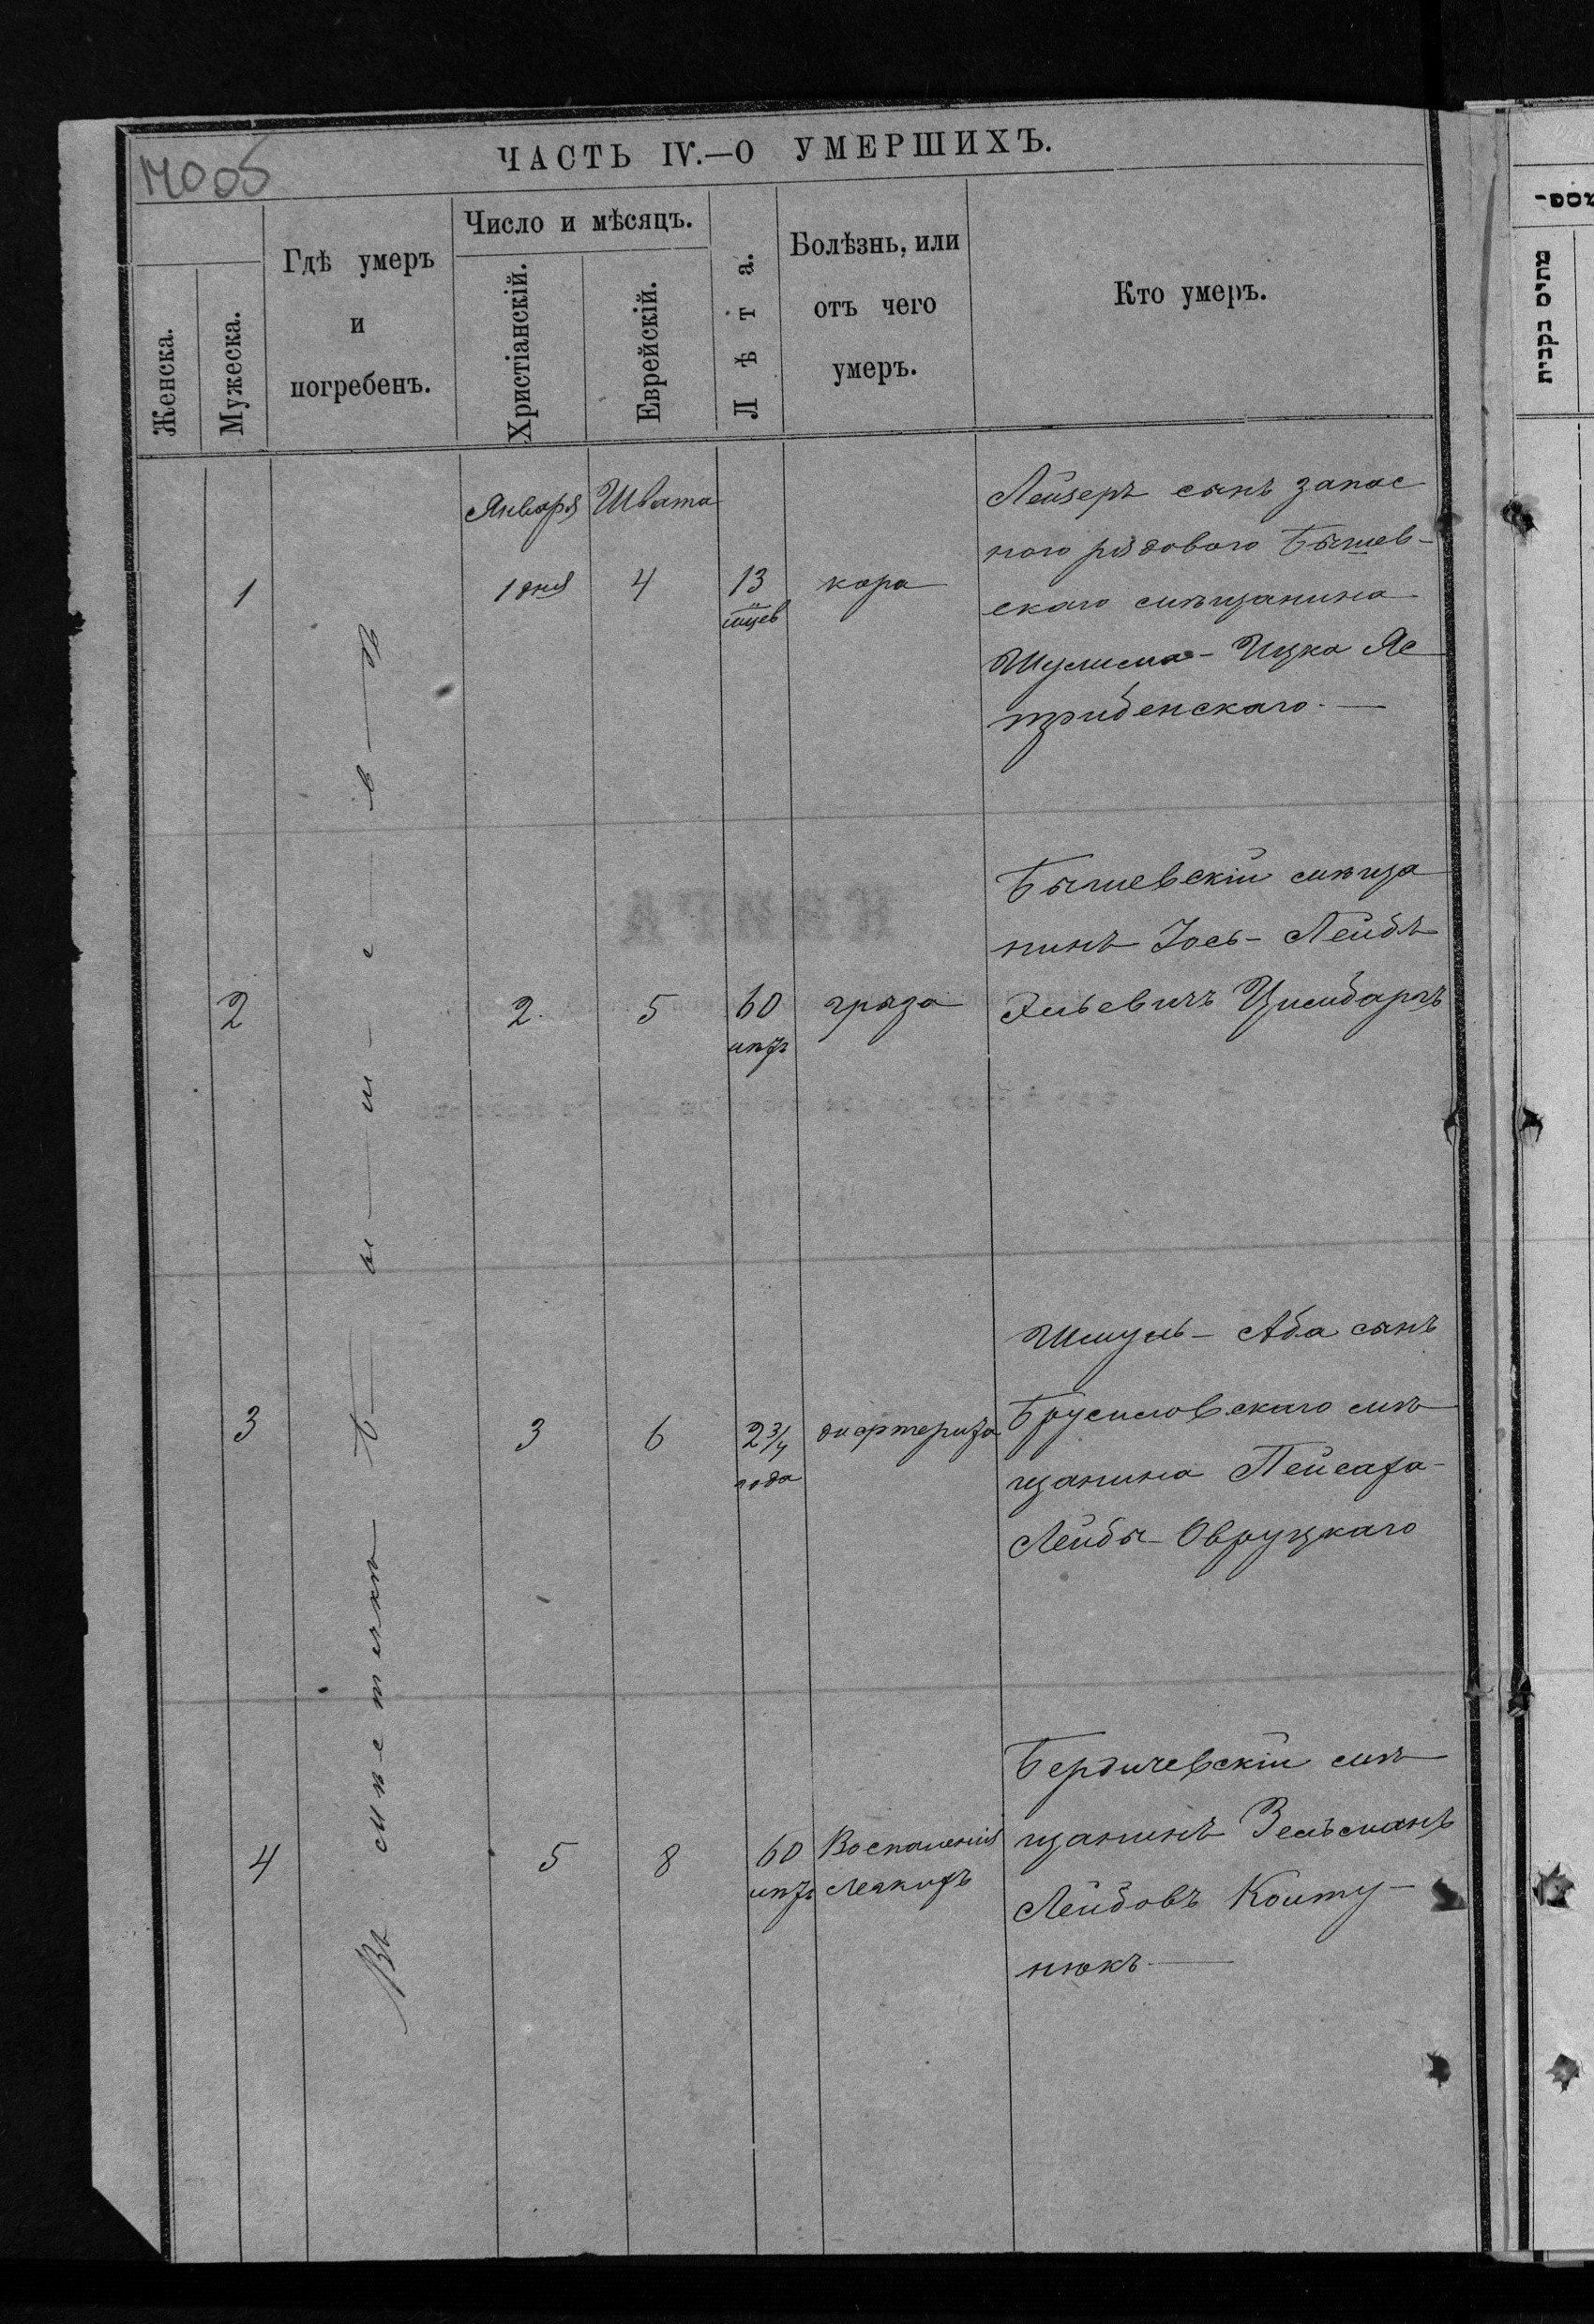 ЧАСТЬ IV.—О УМЕРШИХЪ.
Женска.
Мужеска.
Гдѣ умеръ
и
погребенъ.
Число и мѣсяцъ.
Христіанскій.
Еврейскій.
Лѣта.
Болѣзнь, или
отъ чего
умеръ.
Кто умеръ.
Въ мѣстечкѣ Бышевѣ
Января Швата
1
1 дня
4
13
м-цев
кора
Лейзеръ сынъ запас
ного рядового Бышев-
скаго мѣщанина
Шулима-Ицка Яс
трибенскаго.—
2
2.
5
60
лѣтъ
грыза
Бышевскій мѣща
нинъ Іось-Лейбъ
Эльевичъ Цимбаръ
3
3
6
2 3/4
года
дифтерита
Шмуль-Аба сынъ
Брусиловскаго мѣ
щанина Пейсаха-
Лейбы Овруцкаго
4
5
8
60
лѣтъ
Воспаленія
легкихъ
Бердичевскій мѣ
щанинъ Зельманъ
Лейбовъ Колту-
нюкъ.—
מתים נקבות